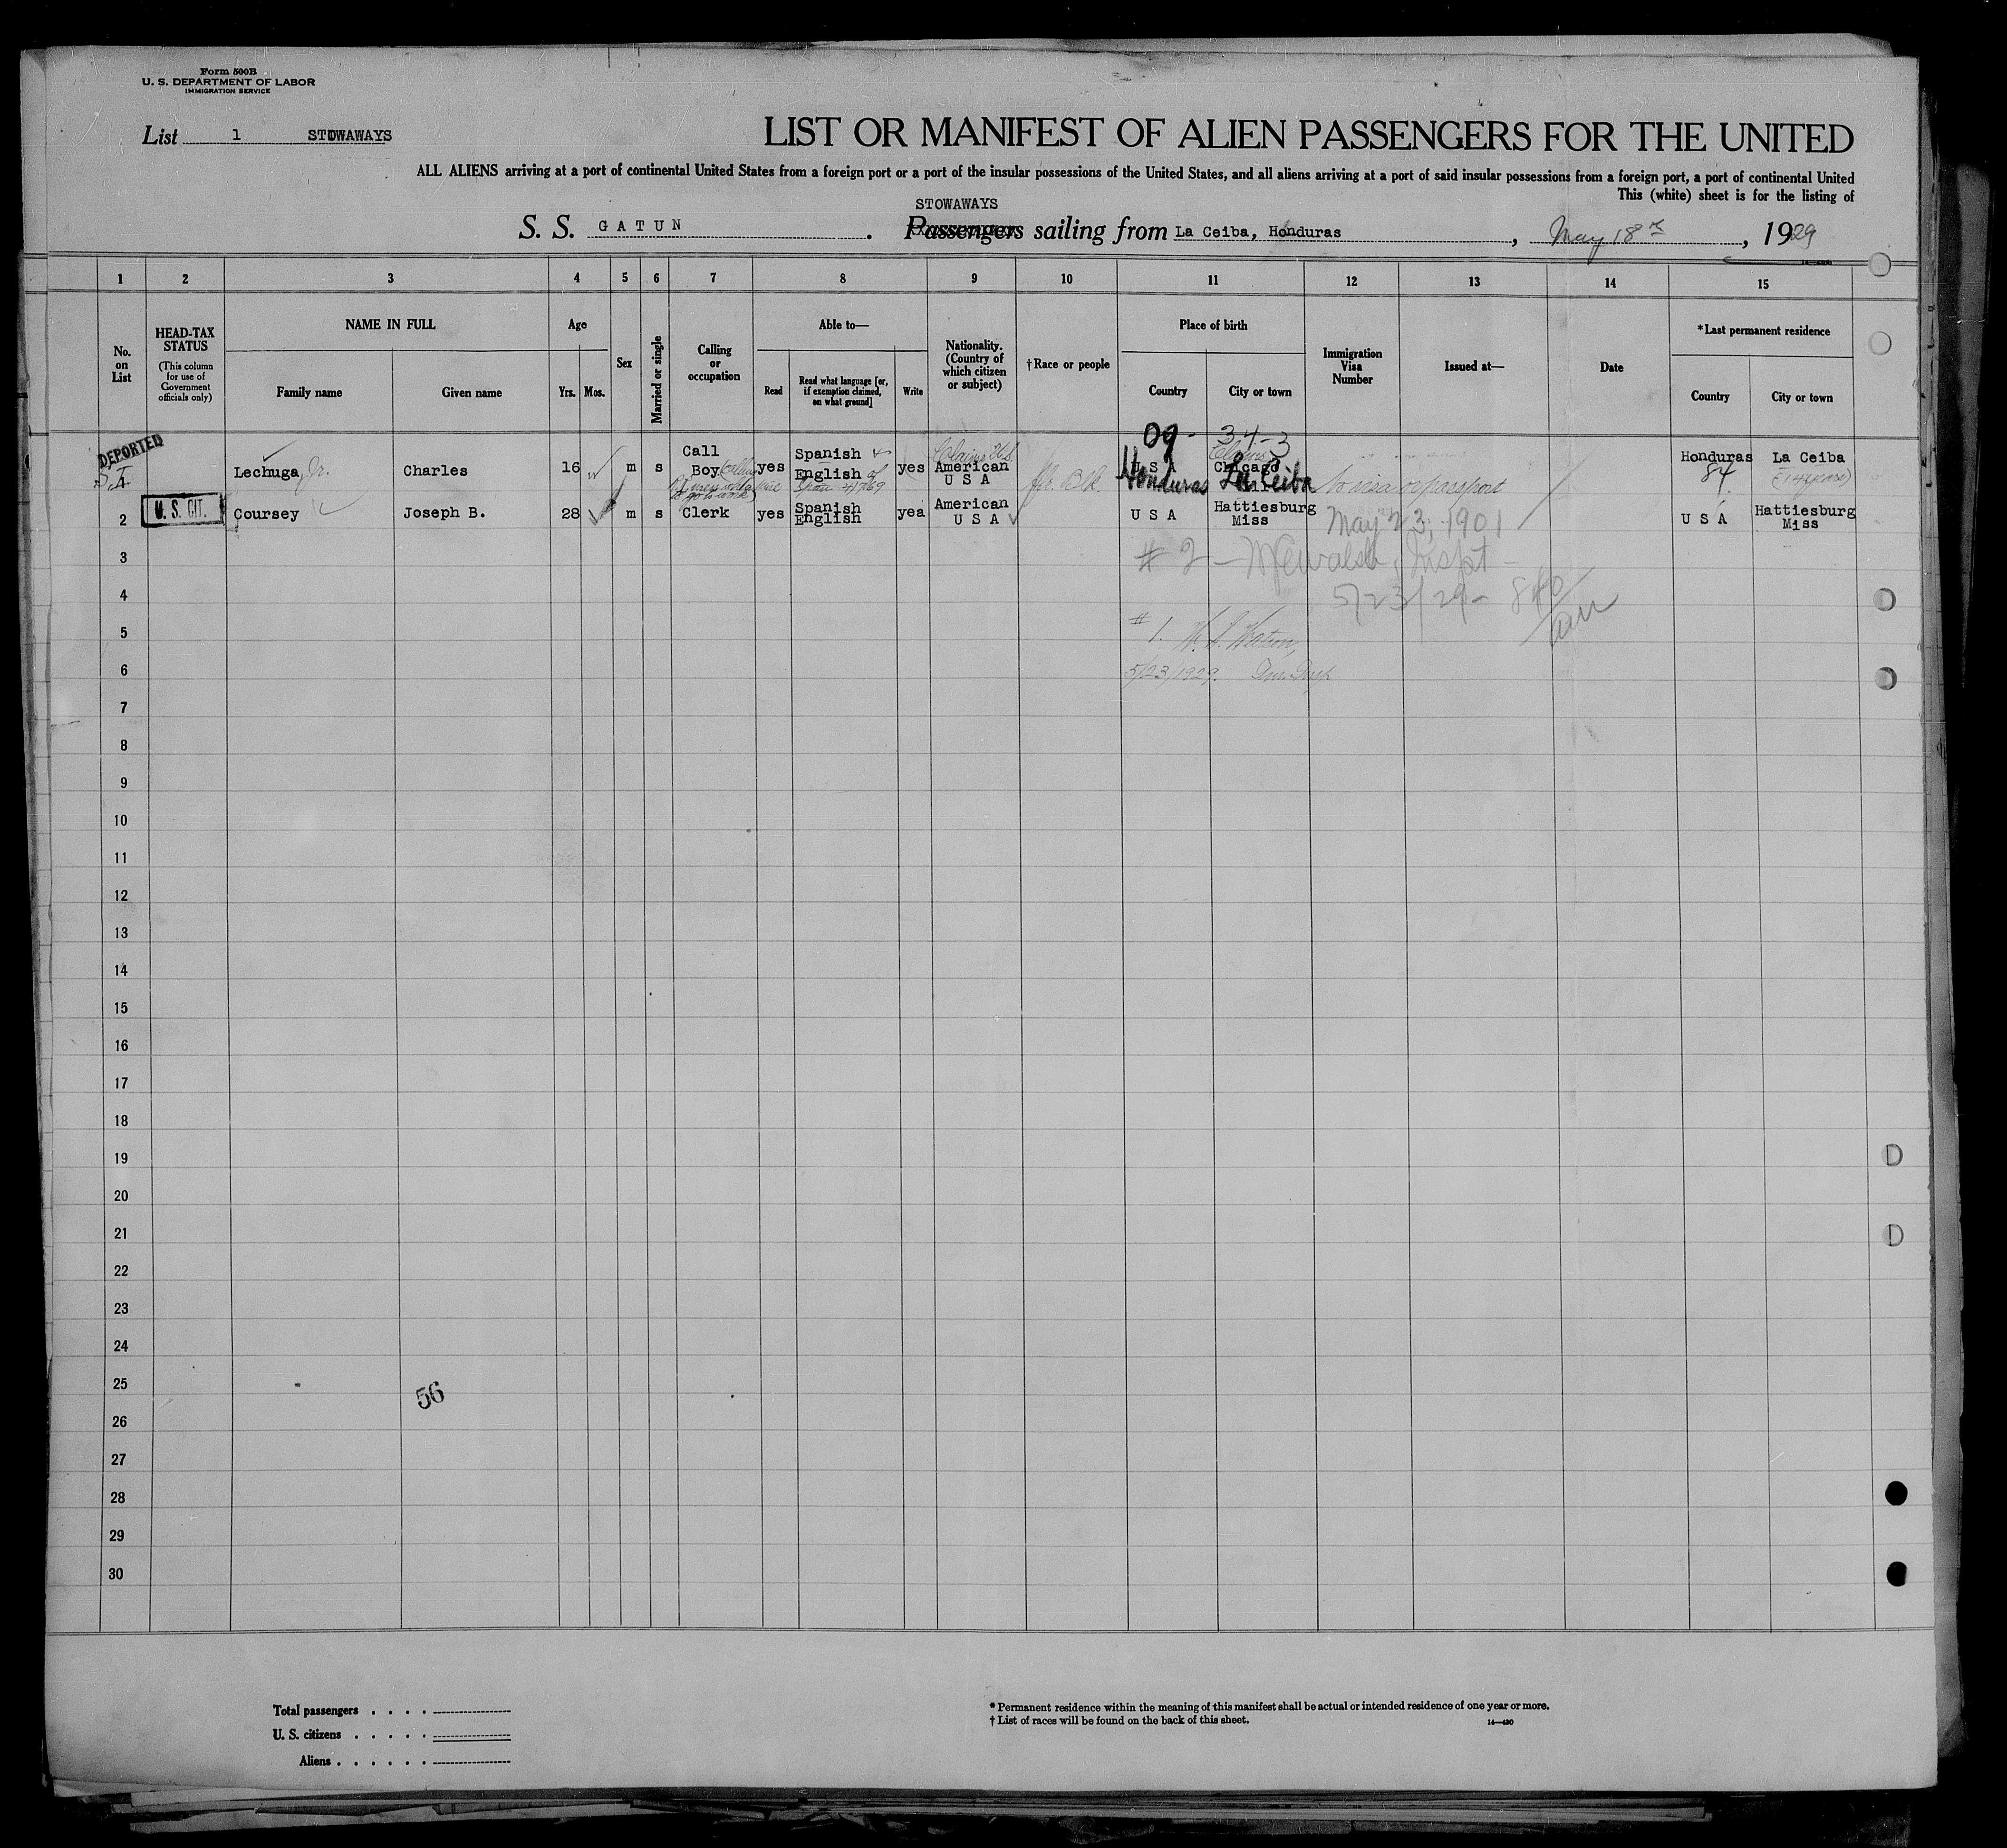 Form 500B
U. S. DEPARTMENT OF LABOR
IMMIGRATION SERVICE
List 1 STOWAWAYS
LIST OR MANIFEST OF ALIEN PASSENGERS FOR THE UNITED
ALL ALIENS arriving at a port of continental United States from a foreign port or a port of the insular possessions of the United States, and all aliens arriving at a port of said insular possessions from a foreign port, a port of continental United
This (white) sheet is for the listing of
STOWAWAYS
S. S. GATUN . Passengers sailing from La Ceiba, Honduras , May 18th , 1929
1 2 3 4 5 6 7 8 9 10 11 12 13 14 15
No. on List
HEAD-TAX STATUS
(This column for use of Government officials only)
NAME IN FULL
Family name
Given name
Age
Yrs.
Mos.
Sex
Married or single
Calling or occupation
Able to—
Read
Read what language [or, if exemption claimed, on what ground]
Write
Nationality. (Country of which citizen or subject)
†Race or people
Place of birth
Country
City or town
Immigration Visa Number
Issued at—
Date
*Last permanent residence
Country
City or town
09 - 34-3
DEPORTED
Lechuga, Jr. Charles 16 m s Call Boy yes Spanish & English yes Claims U.S. American U S A Blk. U S A Claims Chicago Honduras La Ceiba No visa or passport Honduras 84 La Ceiba (14 years)
to go to work)
2 U. S. CIT. Coursey Joseph B. 28 m s Clerk yes Spanish English yea American U S A U S A Hattiesburg Miss May 23, 1901 U S A Hattiesburg Miss
3
# 2 — Walsh, Inspt —
4
5/23/29 - 840
am
5
# 1. Watson,
6
5/23/1929. Imm. Insp.
7
8
9
10
11
12
13
14
15
16
17
18
19
20
21
22
23
24
25
56
26
27
28
29
30
Total passengers . . . .
U. S. citizens . . . . .
Aliens . . . . . .
* Permanent residence within the meaning of this manifest shall be actual or intended residence of one year or more.
† List of races will be found on the back of this sheet.
14—430